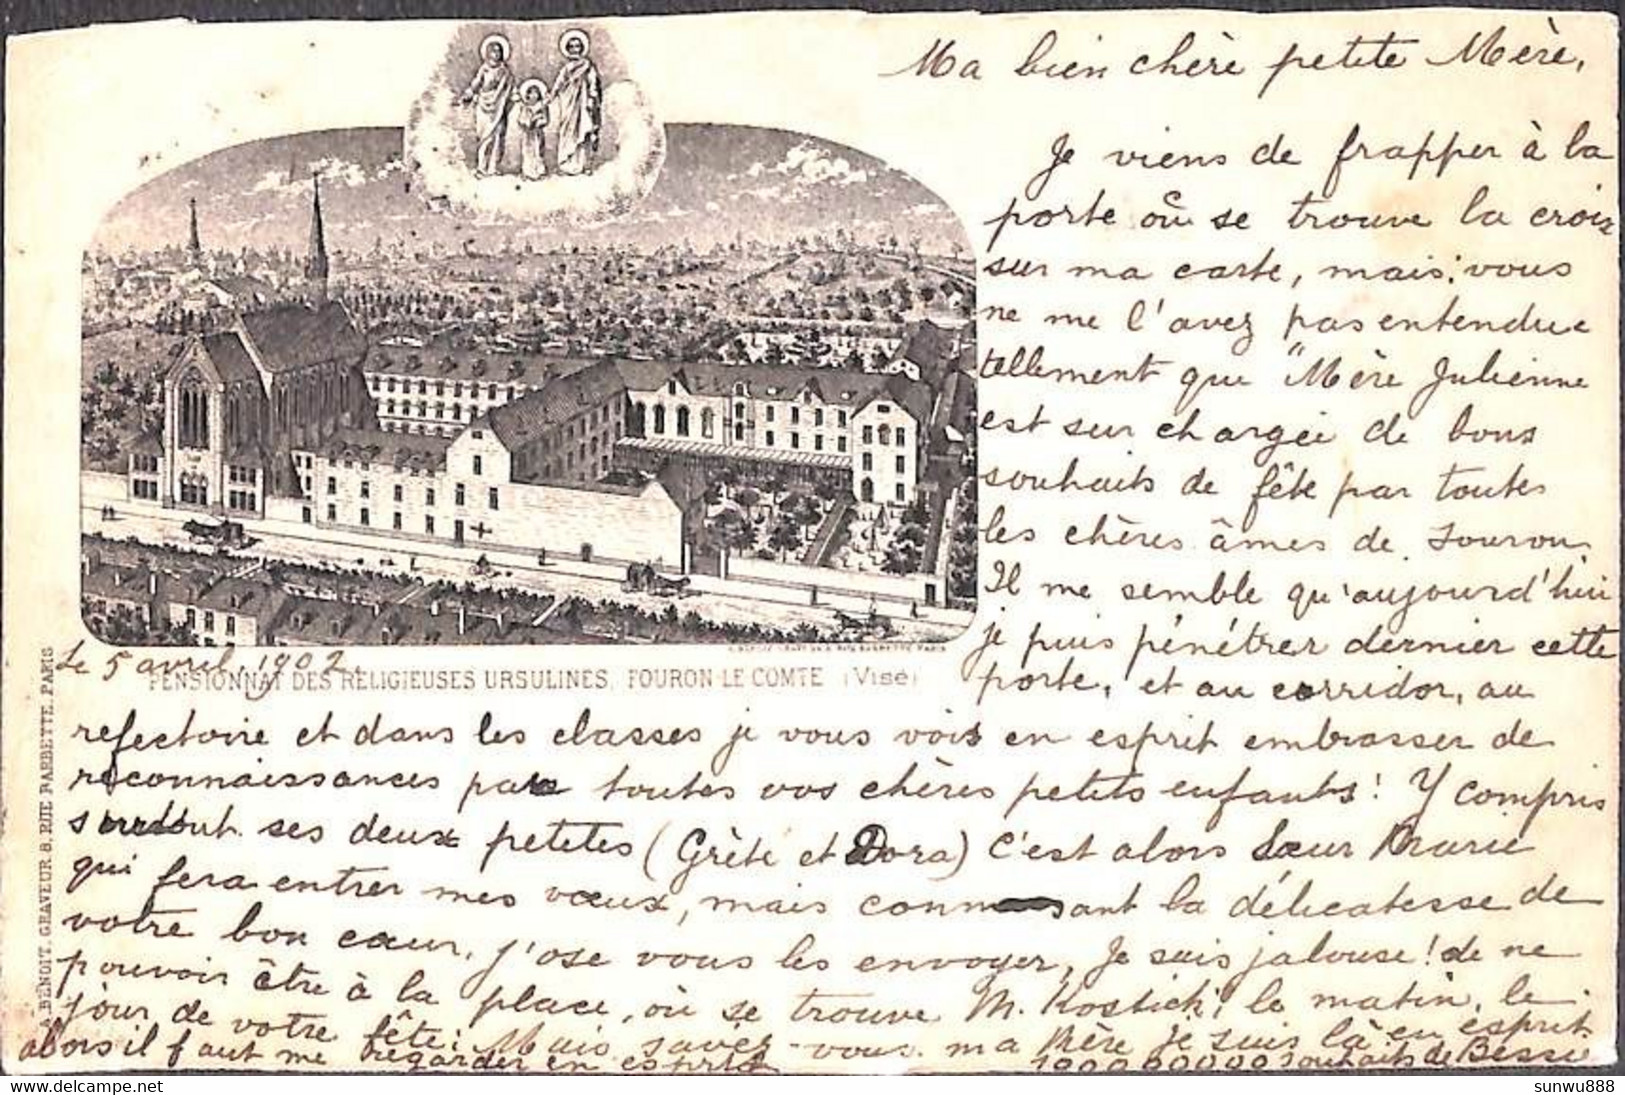 Ma bien chère petite Mère,
Je viens de frapper à la
porte où se trouve la croix
sur ma carte, mais vous
ne me l'avez pas entendue
tellement que "Mère Julienne
est sur chargée de bons
souhaits de fête par toutes
les chères âmes de Fouron
Il me semble qu'aujourd'hui
je puis pénétrer dernier cette
porte, et au corridor, au
Le 5 avril, 1902.
PENSIONNAT DES RELIGIEUSES URSULINES, FOURON-LE-COMTE (Visé)
refectoire et dans les classes je vous vois en esprit embrasser de
reconnaissances par toutes vos chères petits enfants! Y compris
surtout ses deux petites (Grète et Dora) C'est alors Sœur Marie
qui fera entrer mes vœux, mais connaissant la délicatesse de
votre bon cœur, j'ose vous les envoyer, Je suis jalouse! de ne
pouvoir être à la place, où se trouve M. Kostick, le matin, le
jour de votre fête; Mais savez-vous ma Mère je suis là en esprit
alors il faut me regarder en esprit
1000000000 souhaits de Bessie
A. BENOIT, GRAVEUR 8, RUE BARBETTE, PARIS
sunwu888